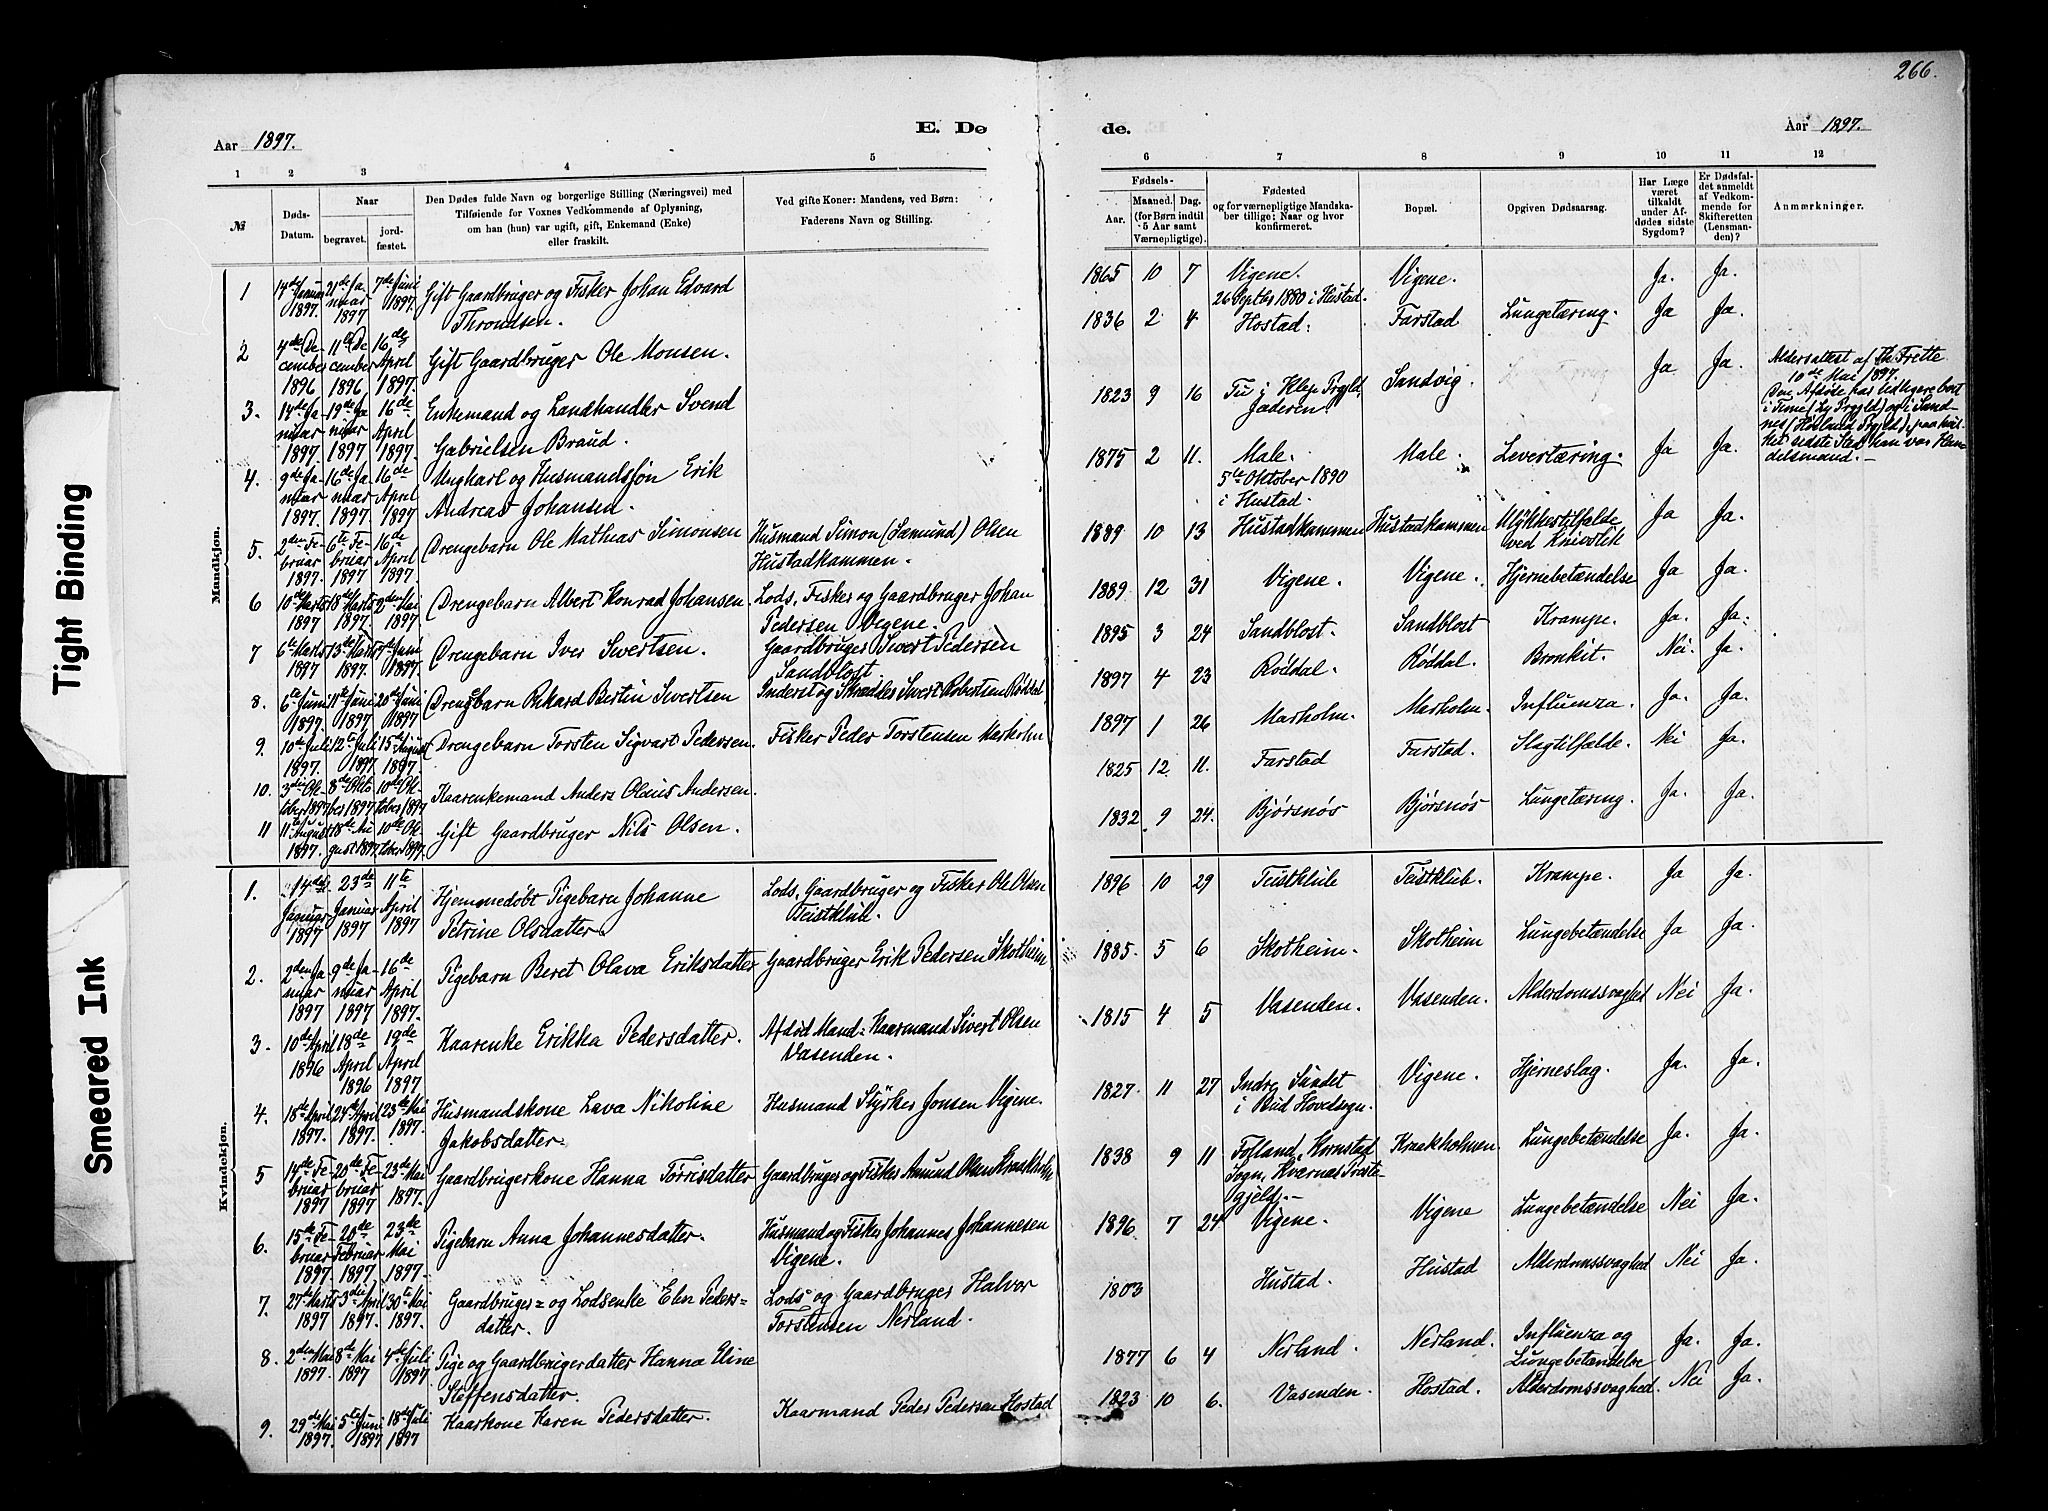 266.
Aar 1897.
E. Dø
de.
Aar 1897.
1 2 3 4 5
6 7 8 9 10 11 12
№
Døds-
Datum.
Naar
begravet.
jord-
fæstet.
Den Dødes fulde Navn og borgerlige Stilling (Næringsvei) med
Tilføiende for Voxnes Vedkommende af Oplysning,
om han (hun) var ugift, gift, Enkemand (Enke)
eller fraskilt.
Ved gifte Koner: Mandens, ved Børn:
Faderens Navn og Stilling.
Fødsels-
Aar.
Maaned. Dag.
(for Børn indtil
5 Aar samt
Værnepligtige).
Fødested
og for værnepligtige Mandska-
ber tillige: Naar og hvor
konfirmeret.
Bopæl.
Opgiven Dødsaarsag.
Har Læge
været
tilkaldt
under Af-
dødes sidste
Sygdom?
Er Dødsfal-
det anmeldt
af Vedkom-
mende for
Skifteretten
(Lensman-
den)?
Anmærkninger.
Mandkjøn.
1 14de Januar 1897. 21de Januar 1897 7de Juni 1897. Gift Gaardbruger og Fisker Johan Edvard
Throndsen.
1865 10 7 Vigene. Vigene. Ja. Ja.
26 Septbr 1880 i Hustad.
2 4de December 1896 11te December 1896 16de April 1897. Gift Gaardbruger Ole Monsen.
1836 2 4 Hostad. Farstad Lungetæring. Ja Ja.
3. 14de Januar 1897. 19de Januar 1897 16de April 1897. Enkemand og Landhandler Svend
Gabrielsen Braud.
1823 9 16 Tu i Klep Prgld. Sandvig. Ja Ja.
Jæderen.
Aldersattest af Th Frette
10de Mai 1897.
Den Afdøde har tidligere boet
i Time (Ly Prgld) og i Sand-
nes (Høiland Prgld), paa hvil-
ket sidste Sted han var Han-
delsmand.
4. 9de Januar 1897. 16de Januar 1897. 16de April 1897 Ungkarl og Husmandssøn Erik
Andreas Johansen.
1875 2 11. Male. Male. Levertæring. Ja Ja.
5te Oktober 1890
i Hustad.
5. 2den Februar 1897. 6te Februar 1897 16de April 1897 Drengebarn Ole Mathias Simonsen Husmand Simon (Samund) Olsen
Hustadkammen.
1889 10 13 Hustadkammen Hustadkammen Ulykkestilfælde Ja Ja.
ved Knivstik
6 10de Marts 1897 18de Marts 1897. 2den Mai 1897 Drengebarn Albert Konrad Johansen. Lods, Fisker og Gaardbruger Johan
Pedersen Vigene.
1889 12 31 Vigene. Vigene. Hjernebetændelse Ja Ja.
7 6te Marts 1897 13de Marts 1897. 7de Juni 1897. Drengebarn Iver Sivertsen. Gaardbruger Sivert Pedersen
Sandblost.
1895 3 24 Sandblost. Sandblost Krampe. Ja. Ja.
8. 6te Juni 1897. 11te Juni 1897 20de Juni 1897 Drengebarn Rikard Bertin Sivertsen Inderst og Skrædder Sivert Robertsen Røddal
1897 4 23 Røddal. Røddal. Bronkit. Nei. Ja.
9. 10de Juli 1897. 12te Juli 1897 15de August 1897 Drengebarn Torsten Sigvart Pedersen. Fisker Peder Torstensen Marholm
1897 1 26 Marholm. Marholm. Influenza. Ja. Ja.
10. 3die Oktober 1897 8de Oktober 1897 10de Oktober 1897 Kaarenkemand Anders Olaus Andersen.
1825 12 11. Farstad Farstad. Slagtilfælde. Nei Ja.
11 11te August 1897. 18de August 1897 10de Oktober 1897. Gift Gaardbruger Nils Olsen.
1832 9 24. Bjørsnøs Bjørsnøs Lungetæring. Ja. Ja.
Kvindekjøn.
1. 14de Januar 1897 23de Januar 1897 11te April 1897 Hjemmedøbt Pigebarn Johanne Lods, Gaardbruger og Fisker Ole Olsen
Petrine Olsdatter. Teistklub.
1896 10 29 Teistklub Teistklub. Krampe. Ja Ja.
2. 2den Januar 1897 9de Januar 1897 16de April 1897. Pigebarn Beret Olava Eriksdatter Gaardbruger Erik Pedersen Skotheim
1885. 5 6 Skotheim. Skotheim Lungebetændelse Ja Ja.
3. 10de April 1896 18de April 1896 19de April 1897 Kaarenke Erikka Pedersdatter. Afdød Mand: Kaarmand Sivert Olsen
Vasenden.
1815 4 5 Vasenden. Vasenden. Alderdomssvaghed Nei Ja.
4. 18de April 1897. 24de April 1897. 23de Mai 1897. Husmandskone Lava Nikoline Husmand Styrker Jonsen Vigene.
Jakobsdatter.
1827 11 27 Indre Sundet Vigene. Hjerneslag. Ja. Ja.
i Bud Hovedsogn.
5 14de Februar 1897 20de Februar 1897 23de Mai 1897. Gaardbrugerkone Hanna Tørrisdatter Gaardbruger og Fisker Amund Olsen Kraakholm
1838 9 11 Folland, Kornstad Kraakholmen. Lungebetændelse Ja. Ja.
Sogn, Kvernæs Præste-
gjeld.
6. 15de Februar 1897. 20de Februar 1897 23de Mai 1897. Pigebarn Anna Johannesdatter. Husmand og Fisker Johannes Johannesen
Vigene.
1896 7 24 Vigene. Vigene Lungebetændelse Nei Ja.
7. 27de Marts 1897 3die April 1897. 30te Mai 1897. Gaardbruger- og Lodsenke Elen Peders- Lods og Gaardbruger Halvor
datter. Torstensen Nerland.
1803 Hustad. Hustad Alderdomssvaghed Nei Ja.
8. 2den Mai 1897. 8de Mai 1897 4de Juli 1897 Pige og Gaardbrugerdatter Hanna Eline
Steffensdatter.
1877 6 4 Nerland. Nerland. Influenza og Ja. Ja.
Lungebetændelse
9. 29de Mai 1897. 5te Juni 1897 18de Juli 1897 Kaarkone Karen Pedersdatter. Kaarmand Peder Pedersen Hostad
1823 10 6. Vasenden. Hostad. Alderdomssvaghed. Nei Ja.
Tight Binding
Smeared Ink